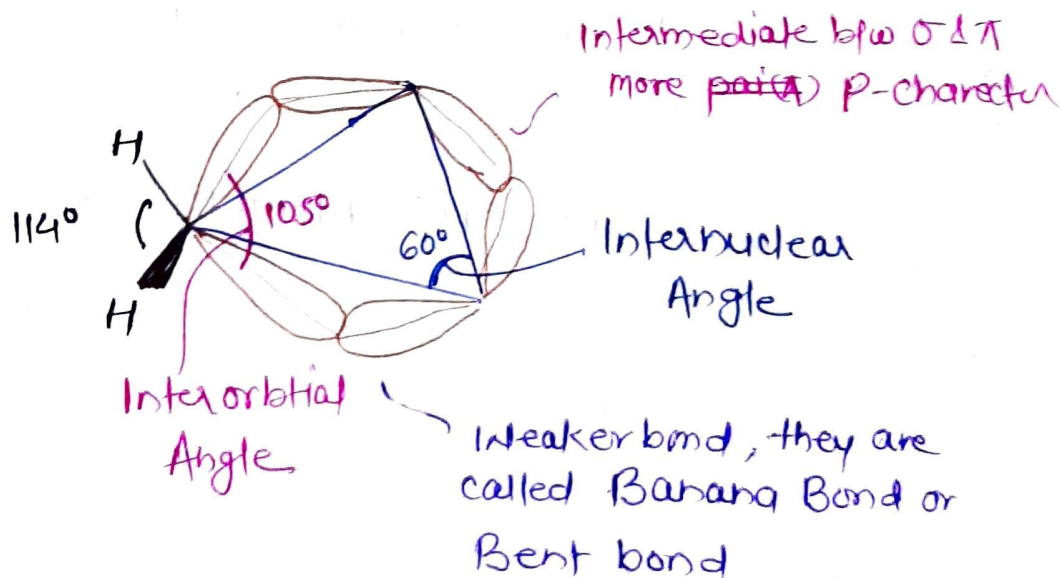 Intermediate b/w σ & π
more p-charecter
H
114°
105°
60°
Internuclear
Angle
H
Interorbtial
Angle
Weaker bond, they are
called Banana Bond or
Bent bond